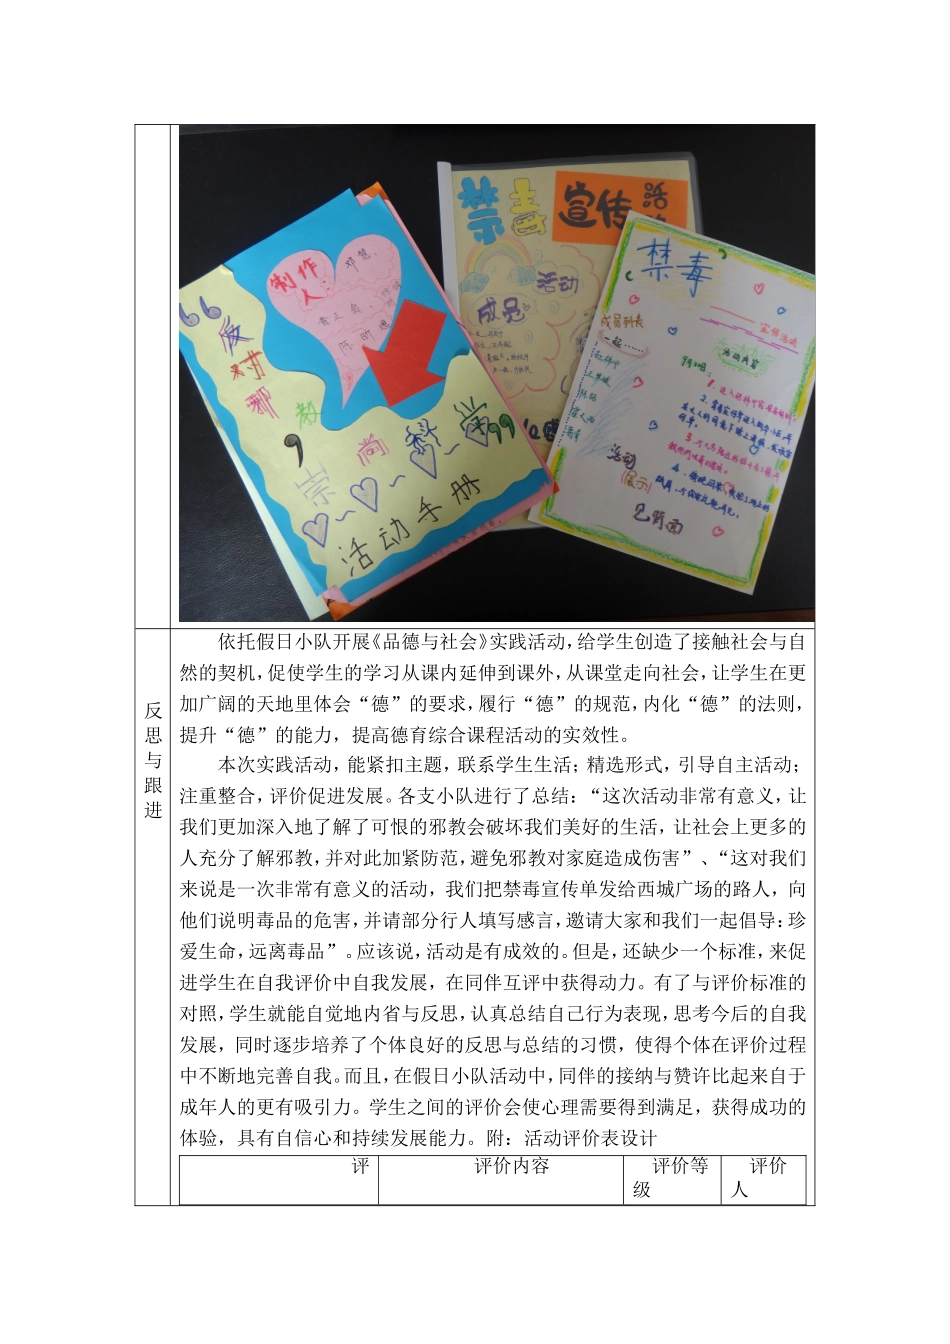 制作人
邓慧
“反对邪教，崇尚科学”
活动手册
禁毒
宣传活
活动
成员
禁毒
宣传活动
成员列表
活动内容
活动
展示
见背面
反思与跟进
依托假日小队开展《品德与社会》实践活动，给学生创造了接触社会与自
然的契机，促使学生的学习从课内延伸到课外，从课堂走向社会，让学生在更
加广阔的天地里体会“德”的要求，履行“德”的规范，内化“德”的法则，
提升“德”的能力，提高德育综合课程活动的实效性。
本次实践活动，能紧扣主题，联系学生生活；精选形式，引导自主活动；
注重整合，评价促进发展。各支小队进行了总结：“这次活动非常有意义，让
我们更加深入地了解了可恨的邪教会破坏我们美好的生活，让社会上更多的
人充分了解邪教，并对此加紧防范，避免邪教对家庭造成伤害”、“这对我们
来说是一次非常有意义的活动，我们把禁毒宣传单发给西城广场的路人，向
他们说明毒品的危害，并请部分行人填写感言，邀请大家和我们一起倡导：珍
爱生命，远离毒品”。应该说，活动是有成效的。但是，还缺少一个标准，来促
进学生在自我评价中自我发展，在同伴互评中获得动力。有了与评价标准的
对照，学生就能自觉地内省与反思，认真总结自己行为表现，思考今后的自我
发展，同时逐步培养了个体良好的反思与总结的习惯，使得个体在评价过程
中不断地完善自我。而且，在假日小队活动中，同伴的接纳与赞许比起来自于
成年人的更有吸引力。学生之间的评价会使心理需要得到满足，获得成功的
体验，具有自信心和持续发展能力。附：活动评价表设计
评 评价内容 评价等级 评价人